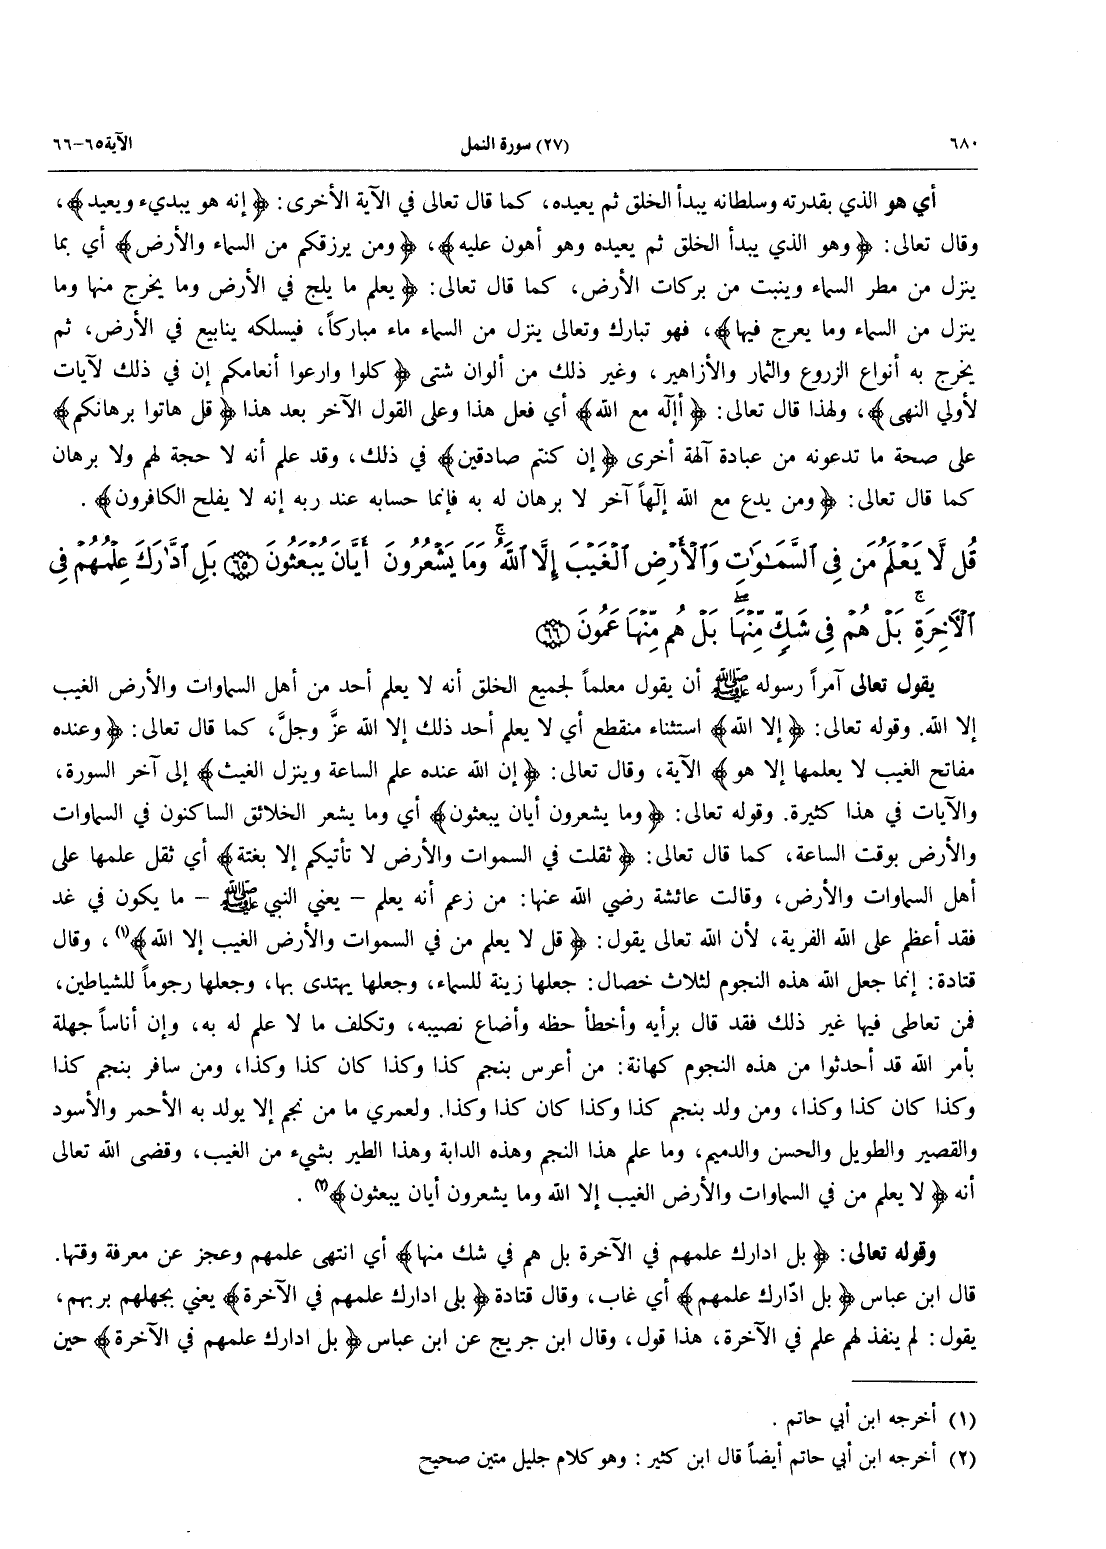 ٦٨٠ (٢٧) سورة النمل الآية ٦٥-٦٦
أي هو الذي بقدرته وسلطانه يبدأ الخلق ثم يعيده، كما قال تعالى في الآية الأخرى: ﴿إنه هو يبديء ويعيد﴾،
وقال تعالى: ﴿وهو الذي يبدأ الخلق ثم يعيده وهو أهون عليه﴾، ﴿ومن يرزقكم من السماء والأرض﴾ أي بما
ينزل من مطر السماء وينبت من بركات الأرض، كما قال تعالى: ﴿يعلم ما يلج في الأرض وما يخرج منها وما
ينزل من السماء وما يعرج فيها﴾، فهو تبارك وتعالى ينزل من السماء ماء مباركاً، فيسلكه ينابيع في الأرض، ثم
يخرج به أنواع الزروع والثمار والأزاهير، وغير ذلك من ألوان شتى ﴿كلوا وارعوا أنعامكم إن في ذلك لآيات
لأولي النهى﴾، ولهذا قال تعالى: ﴿أإلٓه مع الله﴾ أي فعل هذا وعلى القول الآخر بعد هذا ﴿قل هاتوا برهانكم﴾
على صحة ما تدعونه من عبادة آلهة أخرى ﴿إن كنتم صادقين﴾ في ذلك، وقد علم أنه لا حجة لهم ولا برهان
كما قال تعالى: ﴿ومن يدع مع الله إلٓهاً آخر لا برهان له به فإنما حسابه عند ربه إنه لا يفلح الكافرون﴾ .
قُل لَّا يَعْلَمُ مَن فِى ٱلسَّمَـٰوَٰتِ وَٱلْأَرْضِ ٱلْغَيْبَ إِلَّا ٱللَّهُ ۚ وَمَا يَشْعُرُونَ أَيَّانَ يُبْعَثُونَ ﴿٦٥﴾ بَلِ ٱدَّٰرَكَ عِلْمُهُمْ فِى
ٱلْأَخِرَةِ ۚ بَلْ هُمْ فِى شَكٍّ مِّنْهَا ۖ بَلْ هُم مِّنْهَا عَمُونَ ﴿٦٦﴾
يقول تعالى آمراً رسوله ﷺ أن يقول معلماً لجميع الخلق أنه لا يعلم أحد من أهل السماوات والأرض الغيب
إلا الله. وقوله تعالى: ﴿إلا الله﴾ استثناء منقطع أي لا يعلم أحد ذلك إلا الله عزَّ وجلَّ، كما قال تعالى: ﴿وعنده
مفاتح الغيب لا يعلمها إلا هو﴾ الآية، وقال تعالى: ﴿إن الله عنده علم الساعة وينزل الغيث﴾ إلى آخر السورة،
والآيات في هذا كثيرة. وقوله تعالى: ﴿وما يشعرون أيان يبعثون﴾ أي وما يشعر الخلائق الساكنون في السماوات
والأرض بوقت الساعة، كما قال تعالى: ﴿ثقلت في السموات والأرض لا تأتيكم إلا بغتة﴾ أي ثقل علمها على
أهل السماوات والأرض، وقالت عائشة رضي الله عنها: من زعم أنه يعلم – يعني النبي ﷺ – ما يكون في غد
فقد أعظم على الله الفرية، لأن الله تعالى يقول: ﴿قل لا يعلم من في السموات والأرض الغيب إلا الله﴾(١)، وقال
قتادة: إنما جعل الله هذه النجوم لثلاث خصال: جعلها زينة للسماء، وجعلها يهتدى بها، وجعلها رجوماً للشياطين،
فمن تعاطى فيها غير ذلك فقد قال برأيه وأخطأ حظه وأضاع نصيبه، وتكلف ما لا علم له به، وإن أناساً جهلة
بأمر الله قد أحدثوا من هذه النجوم كهانة: من أعرس بنجم كذا وكذا كان كذا وكذا، ومن سافر بنجم كذا
وكذا كان كذا وكذا، ومن ولد بنجم كذا وكذا كان كذا وكذا. ولعمري ما من نجم إلا يولد به الأحمر والأسود
والقصير والطويل والحسن والدميم، وما علم هذا النجم وهذه الدابة وهذا الطير بشيء من الغيب، وقضى الله تعالى
أنه ﴿لا يعلم من في السماوات والأرض الغيب إلا الله وما يشعرون أيان يبعثون﴾(٢) .
وقوله تعالى: ﴿بل ادارك علمهم في الآخرة بل هم في شك منها﴾ أي انتهى علمهم وعجز عن معرفة وقتها.
قال ابن عباس ﴿بل ادّارك علمهم﴾ أي غاب، وقال قتادة ﴿بلى ادارك علمهم في الآخرة﴾ يعني بجهلهم بربهم،
يقول: لم ينفذ لهم علم في الآخرة، هذا قول، وقال ابن جريج عن ابن عباس ﴿بل ادارك علمهم في الآخرة﴾ حين
(١) أخرجه ابن أبي حاتم .
(٢) أخرجه ابن أبي حاتم أيضاً قال ابن كثير : وهو كلام جليل متين صحيح